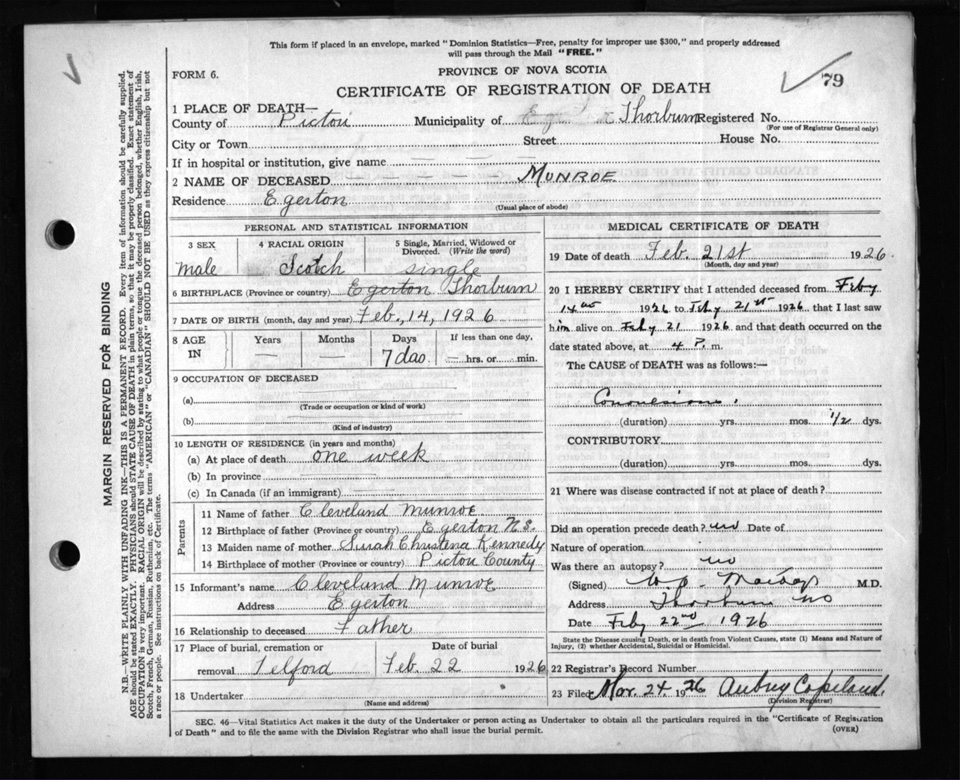 This form if placed in an envelope, marked "Dominion Statistics—Free, penalty for improper use $300," and properly addressed
will pass through the Mail "FREE."
FORM 6.
PROVINCE OF NOVA SCOTIA
CERTIFICATE OF REGISTRATION OF DEATH
79
1 PLACE OF DEATH—
County of Pictou Municipality of Thorburn Registered No.
(For use of Registrar General only)
City or Town Street House No.
If in hospital or institution, give name
2 NAME OF DECEASED MUNROE
Residence Egerton
(Usual place of abode)
PERSONAL AND STATISTICAL INFORMATION
3 SEX 4 RACIAL ORIGIN 5 Single, Married, Widowed or
Divorced. (Write the word)
male Scotch single
6 BIRTHPLACE (Province or country) Egerton Thorburn
7 DATE OF BIRTH (month, day and year) Feb., 14, 1926
8 AGE Years Months Days If less than one day,
IN 7 hrs. or min.
9 OCCUPATION OF DECEASED
(a)
(Trade or occupation or kind of work)
(b)
(Kind of industry)
10 LENGTH OF RESIDENCE (in years and months)
(a) At place of death one week
(b) In province
(c) In Canada (if an immigrant)
Parents
11 Name of father Cleveland Munroe
12 Birthplace of father (Province or country) Egerton N.S.
13 Maiden name of mother Christena Kennedy
14 Birthplace of mother (Province or country) Pictou County
15 Informant's name Cleveland Munroe
Address Egerton
16 Relationship to deceased Father
17 Place of burial, cremation or Date of burial
removal Telford Feb. 22 1926
18 Undertaker
(Name and address)
MEDICAL CERTIFICATE OF DEATH
19 Date of death Feb. 21st 1926
(Month, day and year)
20 I HEREBY CERTIFY that I attended deceased from Feby
14 1926 to Feby 21st 1926 that I last saw
him alive on Feby 21 1926 and that death occurred on the
date stated above, at 4 P. m.
The CAUSE of DEATH was as follows:—
Convulsions.
(duration) yrs. mos. 1/2 dys.
CONTRIBUTORY
(duration) yrs. mos. dys.
21 Where was disease contracted if not at place of death?
Did an operation precede death? no Date of
Nature of operation
Was there an autopsy? no
(Signed) M.D.
Address Thorburn NS
Date Feby 22nd 1926
State the Disease causing Death, or in death from Violent Causes, state (1) Means and Nature of
Injury, (2) whether Accidental, Suicidal or Homicidal.
22 Registrar's Record Number
23 Filed Mar. 24 1926 Aubrey Copeland
(Division Registrar)
SEC. 46—Vital Statistics Act makes it the duty of the Undertaker or person acting as Undertaker to obtain all the particulars required in the "Certificate of Registration
of Death" and to file the same with the Division Registrar who shall issue the burial permit.
(OVER)
MARGIN RESERVED FOR BINDING
N.B.—WRITE PLAINLY, WITH UNFADING INK—THIS IS A PERMANENT RECORD. Every item of information should be carefully supplied.
AGE should be stated EXACTLY. PHYSICIANS should STATE CAUSE OF DEATH in plain terms, so that it may be properly classified. Exact statement of
OCCUPATION is very important. RACIAL ORIGIN will be described by stating to what people or tongue the deceased person belonged, whether English, Irish,
Scotch, French, German, Russian, Ruthenian, etc. The terms "AMERICAN" or "CANADIAN" SHOULD NOT BE USED as they express citizenship but not
a race or people. See instructions on back of Certificate.